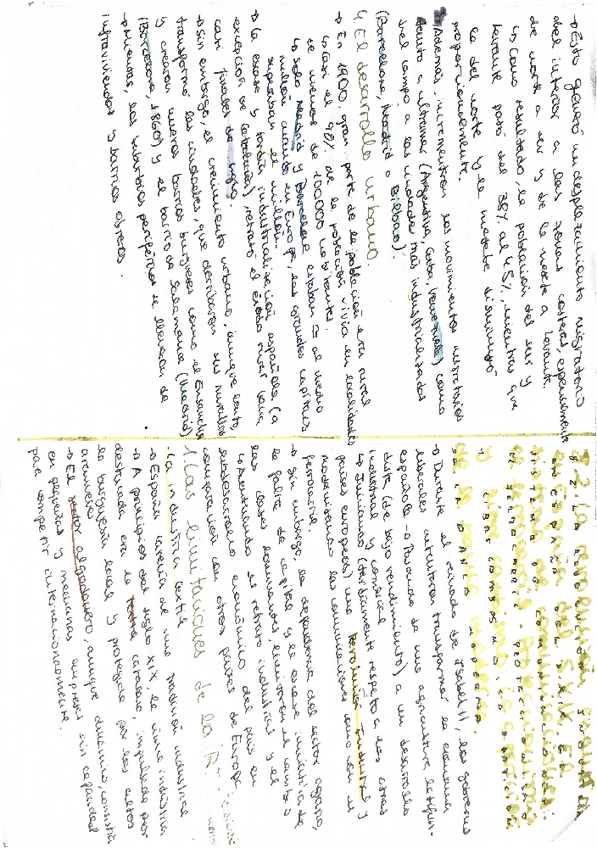 → Ésto generó un desplazamiento migratorio
del interior a las zonas costeras, especialmente
de norte a sur y de la meseta a Levante.
↳ Como resultado, la población del sur y
Levante pasó del 38% al 45%, mientras que
la del norte y la meseta disminuyó
proporcionalmente.
→ Además, incrementaron los movimientos migratorios
tanto a ultramar (Argentina, Cuba, Venezuela) como
del campo a las ciudades más industrializadas
(Barcelona, Madrid o Bilbao).
4. El desarrollo urbano.
→ En 1900, gran parte de la población era rural
↳ Casi el 90% de la población vivía en localidades
de menos de 100.000 habitantes.
↳ Solo Madrid y Barcelona estaban al medio
millón cuando en Europa, las grandes capitales
superaban el millón.
→ La escasa y tardía industrialización española (a
excepción de Cataluña), retrasó el éxodo rural hasta
casi finales de siglo.
→ Sin embargo, el crecimiento urbano, aunque lento
transformó las ciudades, que derribaron sus murallas
y crearon nuevos barrios burgueses como el Ensanche
(Barcelona, 1860) y el barrio de Salamanca (Madrid)
→ Mientras, los suburbios periféricos se llenaron de
infraviviendas y barrios obreros.
8.2. La revolución industrial
en la España del S.XIX. El
sistema de comunicaciones:
el ferrocarril. Proteccionismo
y librecambismo. La aparición
de la banca moderna.
→ Durante el reinado de Isabel II, los gobiernos
liberales intentaron transformar la economía
española → Pasando de una agricultura latifun-
dista (de bajo rendimiento) a un desarrollo
industrial y comercial
↳ Iniciando (tardíamente respeto a los otros
países europeos) una Revolución Industrial y
modernizando las comunicaciones como con el
ferrocarril.
→ Sin embargo, la dependencia del sector agrario,
la falta de capital y la escasa iniciativa de
las clases dominantes, limitaron el cambio
↳ Acentuando el retraso industrial y el
subdesarrollo económico del país en
comparación con otros países de Europa.
1. Las limitaciones de la
· La industria textil
→ España carecía de una tradición industrial
→ A principios del siglo XIX, la única industria
destacada era la textil catalana, impulsada por
la burguesía local y protegida por los altos
aranceles
→ El sector algodonero, aunque dinámico, consistía
en pequeñas y medianas empresas sin capacidad
para competir internacionalmente.